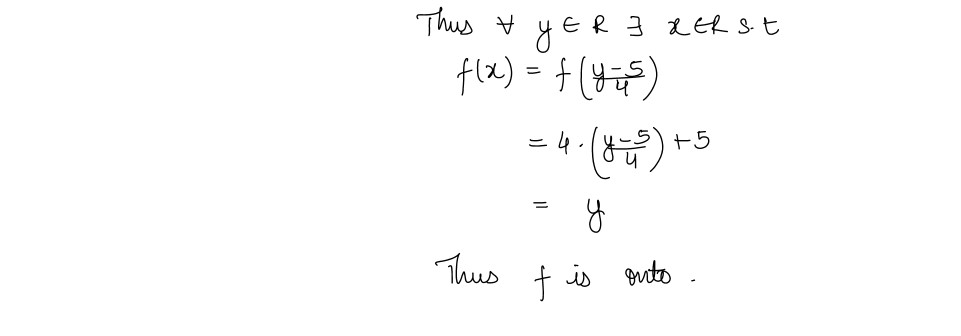 Thus ∀ y ∈ R ∃ x ∈ R s.t
f(x) = f((y-5)/4)
= 4 · ((y-5)/4) + 5
= y
Thus f is onto.